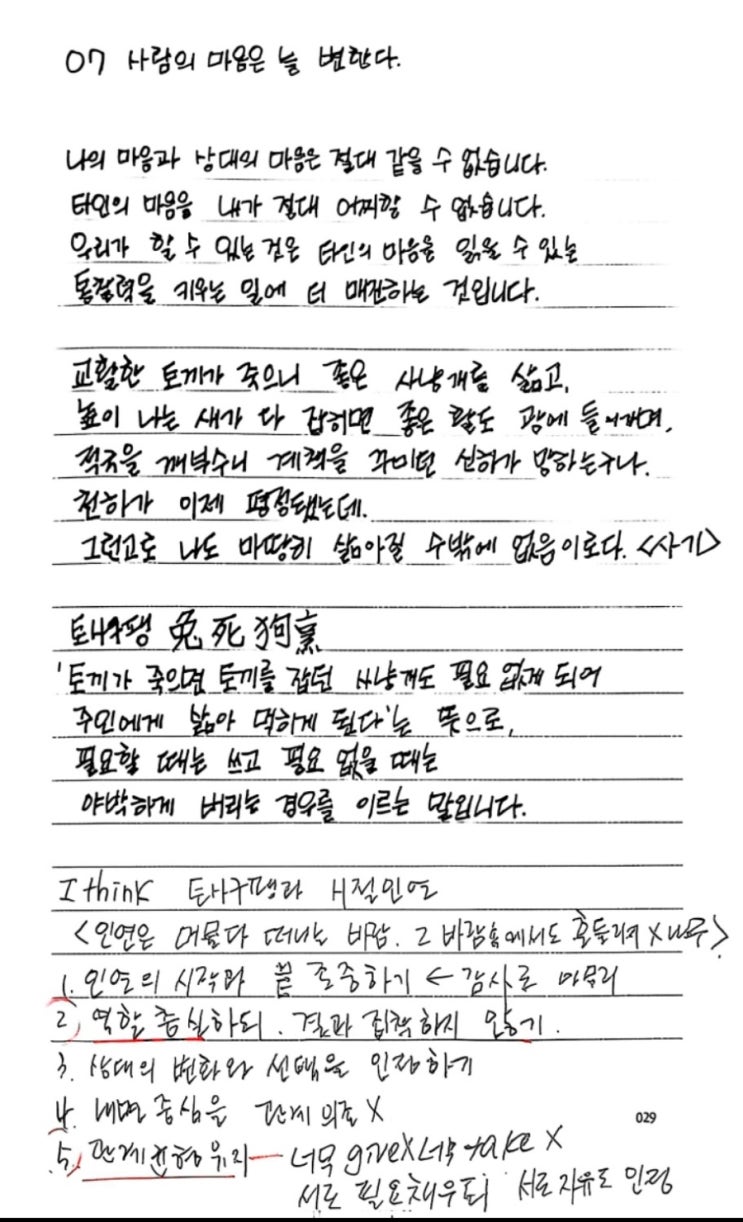 07 사람의 마음은 늘 변한다.
나의 마음과 상대의 마음은 절대 같을 수 없습니다.
타인의 마음을 내가 절대 어찌할 수 없습니다.
우리가 할 수 있는 것은 타인의 마음을 읽을 수 있는
통찰력을 키우는 일에 더 매진하는 것입니다.
교활한 토끼가 죽으니 좋은 사냥개를 삶고,
높이 나는 새가 다 잡히면 좋은 활도 광에 들어가며,
적국을 깨부수니 계책을 꾸미던 신하가 망하는구나.
천하가 이제 평정됐는데.
그런고로 나도 마땅히 삶아질 수밖에 없음이로다. <사기>
토사구팽 兎死狗烹
'토끼가 죽으면 토끼를 잡던 사냥개도 필요 없게 되어
주인에게 삶아 먹히게 된다'는 뜻으로,
필요할 때는 쓰고 필요 없을 때는
야박하게 버리는 경우를 이르는 말입니다.
I think 토사구팽과 시절인연
<인연은 머물다 떠나는 바람. 그 바람 속에서도 흔들려 X 나무>
1. 인연의 시작과 끝 존중하기 ← 감사로 마무리
2. 역할 충실하되. 결과 집착하지 않기.
3. 상대의 변화와 선택을 인정하기
4. 내면 중심을 관계 의존 X
029
5. 관계 균형 유지 — 너무 give X 너무 take X
서로 필요 채우되 서로 자유도 인정